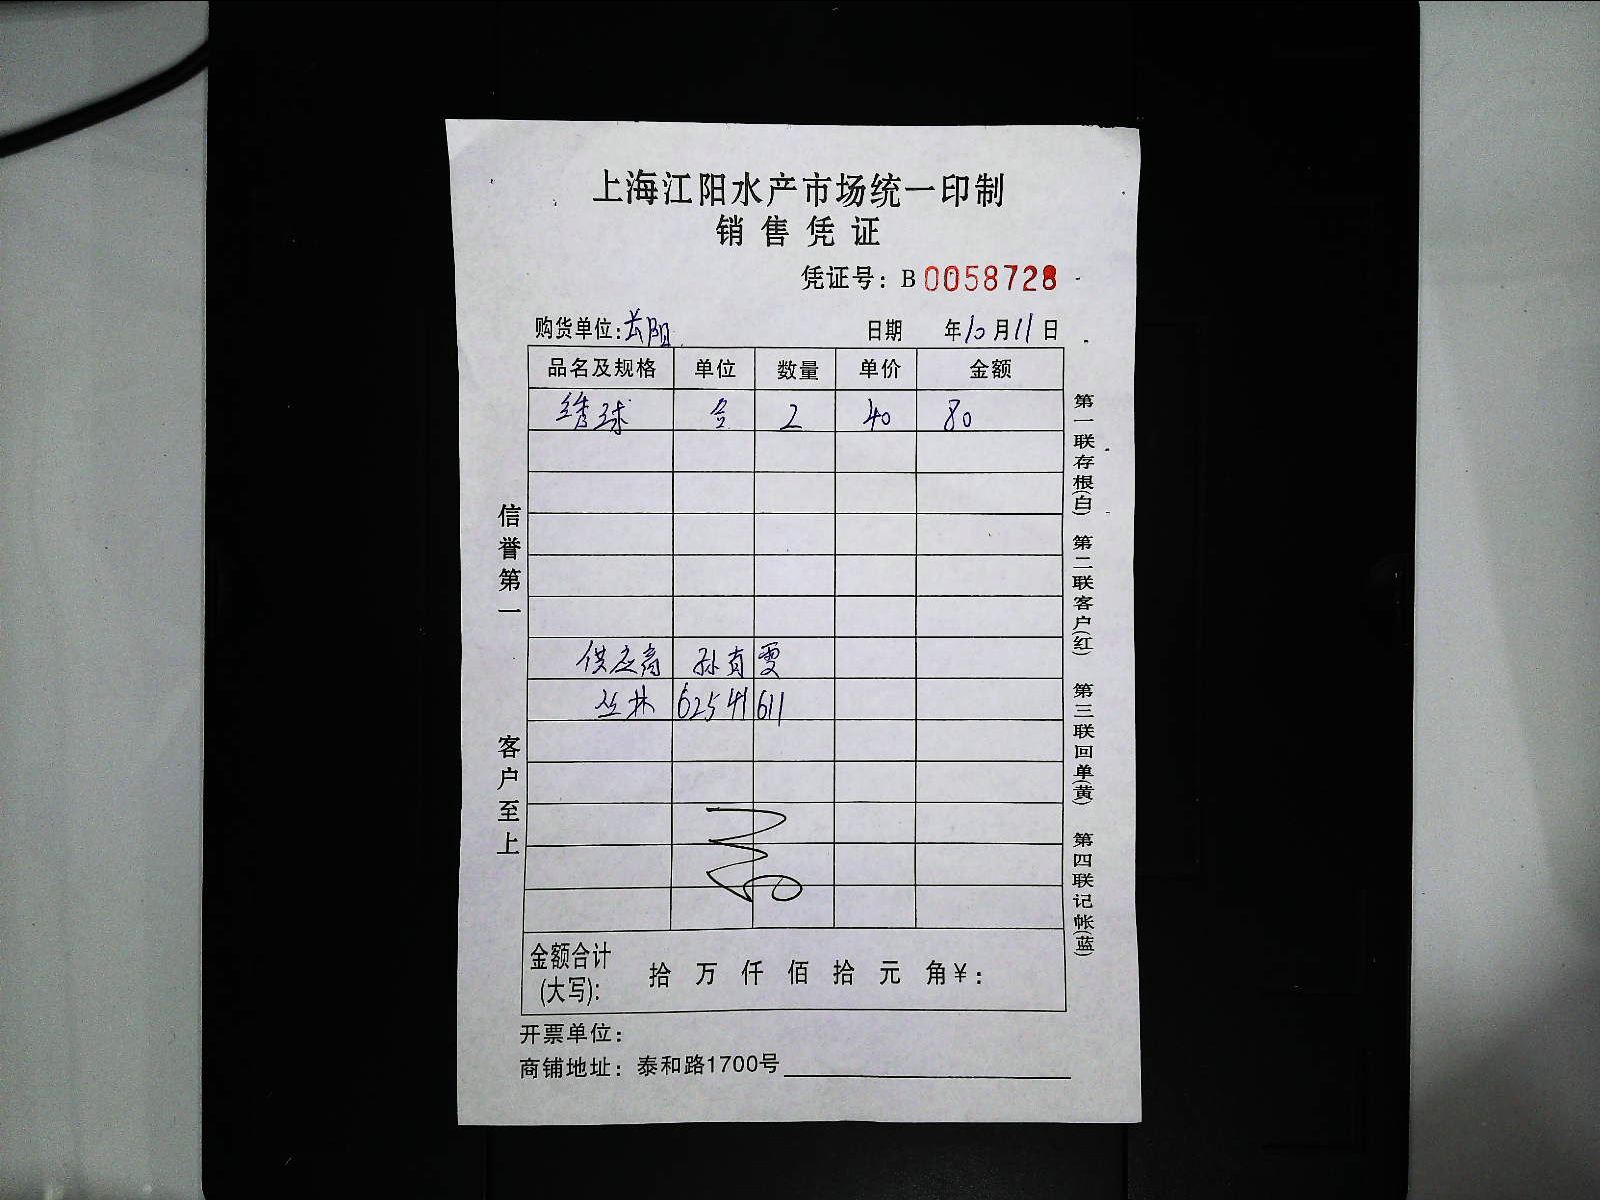 上海江阳水产市场统一印制
销售凭证
凭证号：B 0058728
购货单位: 日期 年10月11日
品名及规格 单位 数量 单价 金额
绣球 合 2 40 80
供应商 孙育雯
丛林 62541611
金额合计 拾 万 仟 佰 拾 元 角¥：
(大写):
开票单位：
商铺地址：泰和路1700号
信誉第一 客户至上
第一联存根(白) 第二联客户(红) 第三联回单(黄) 第四联记帐(蓝)